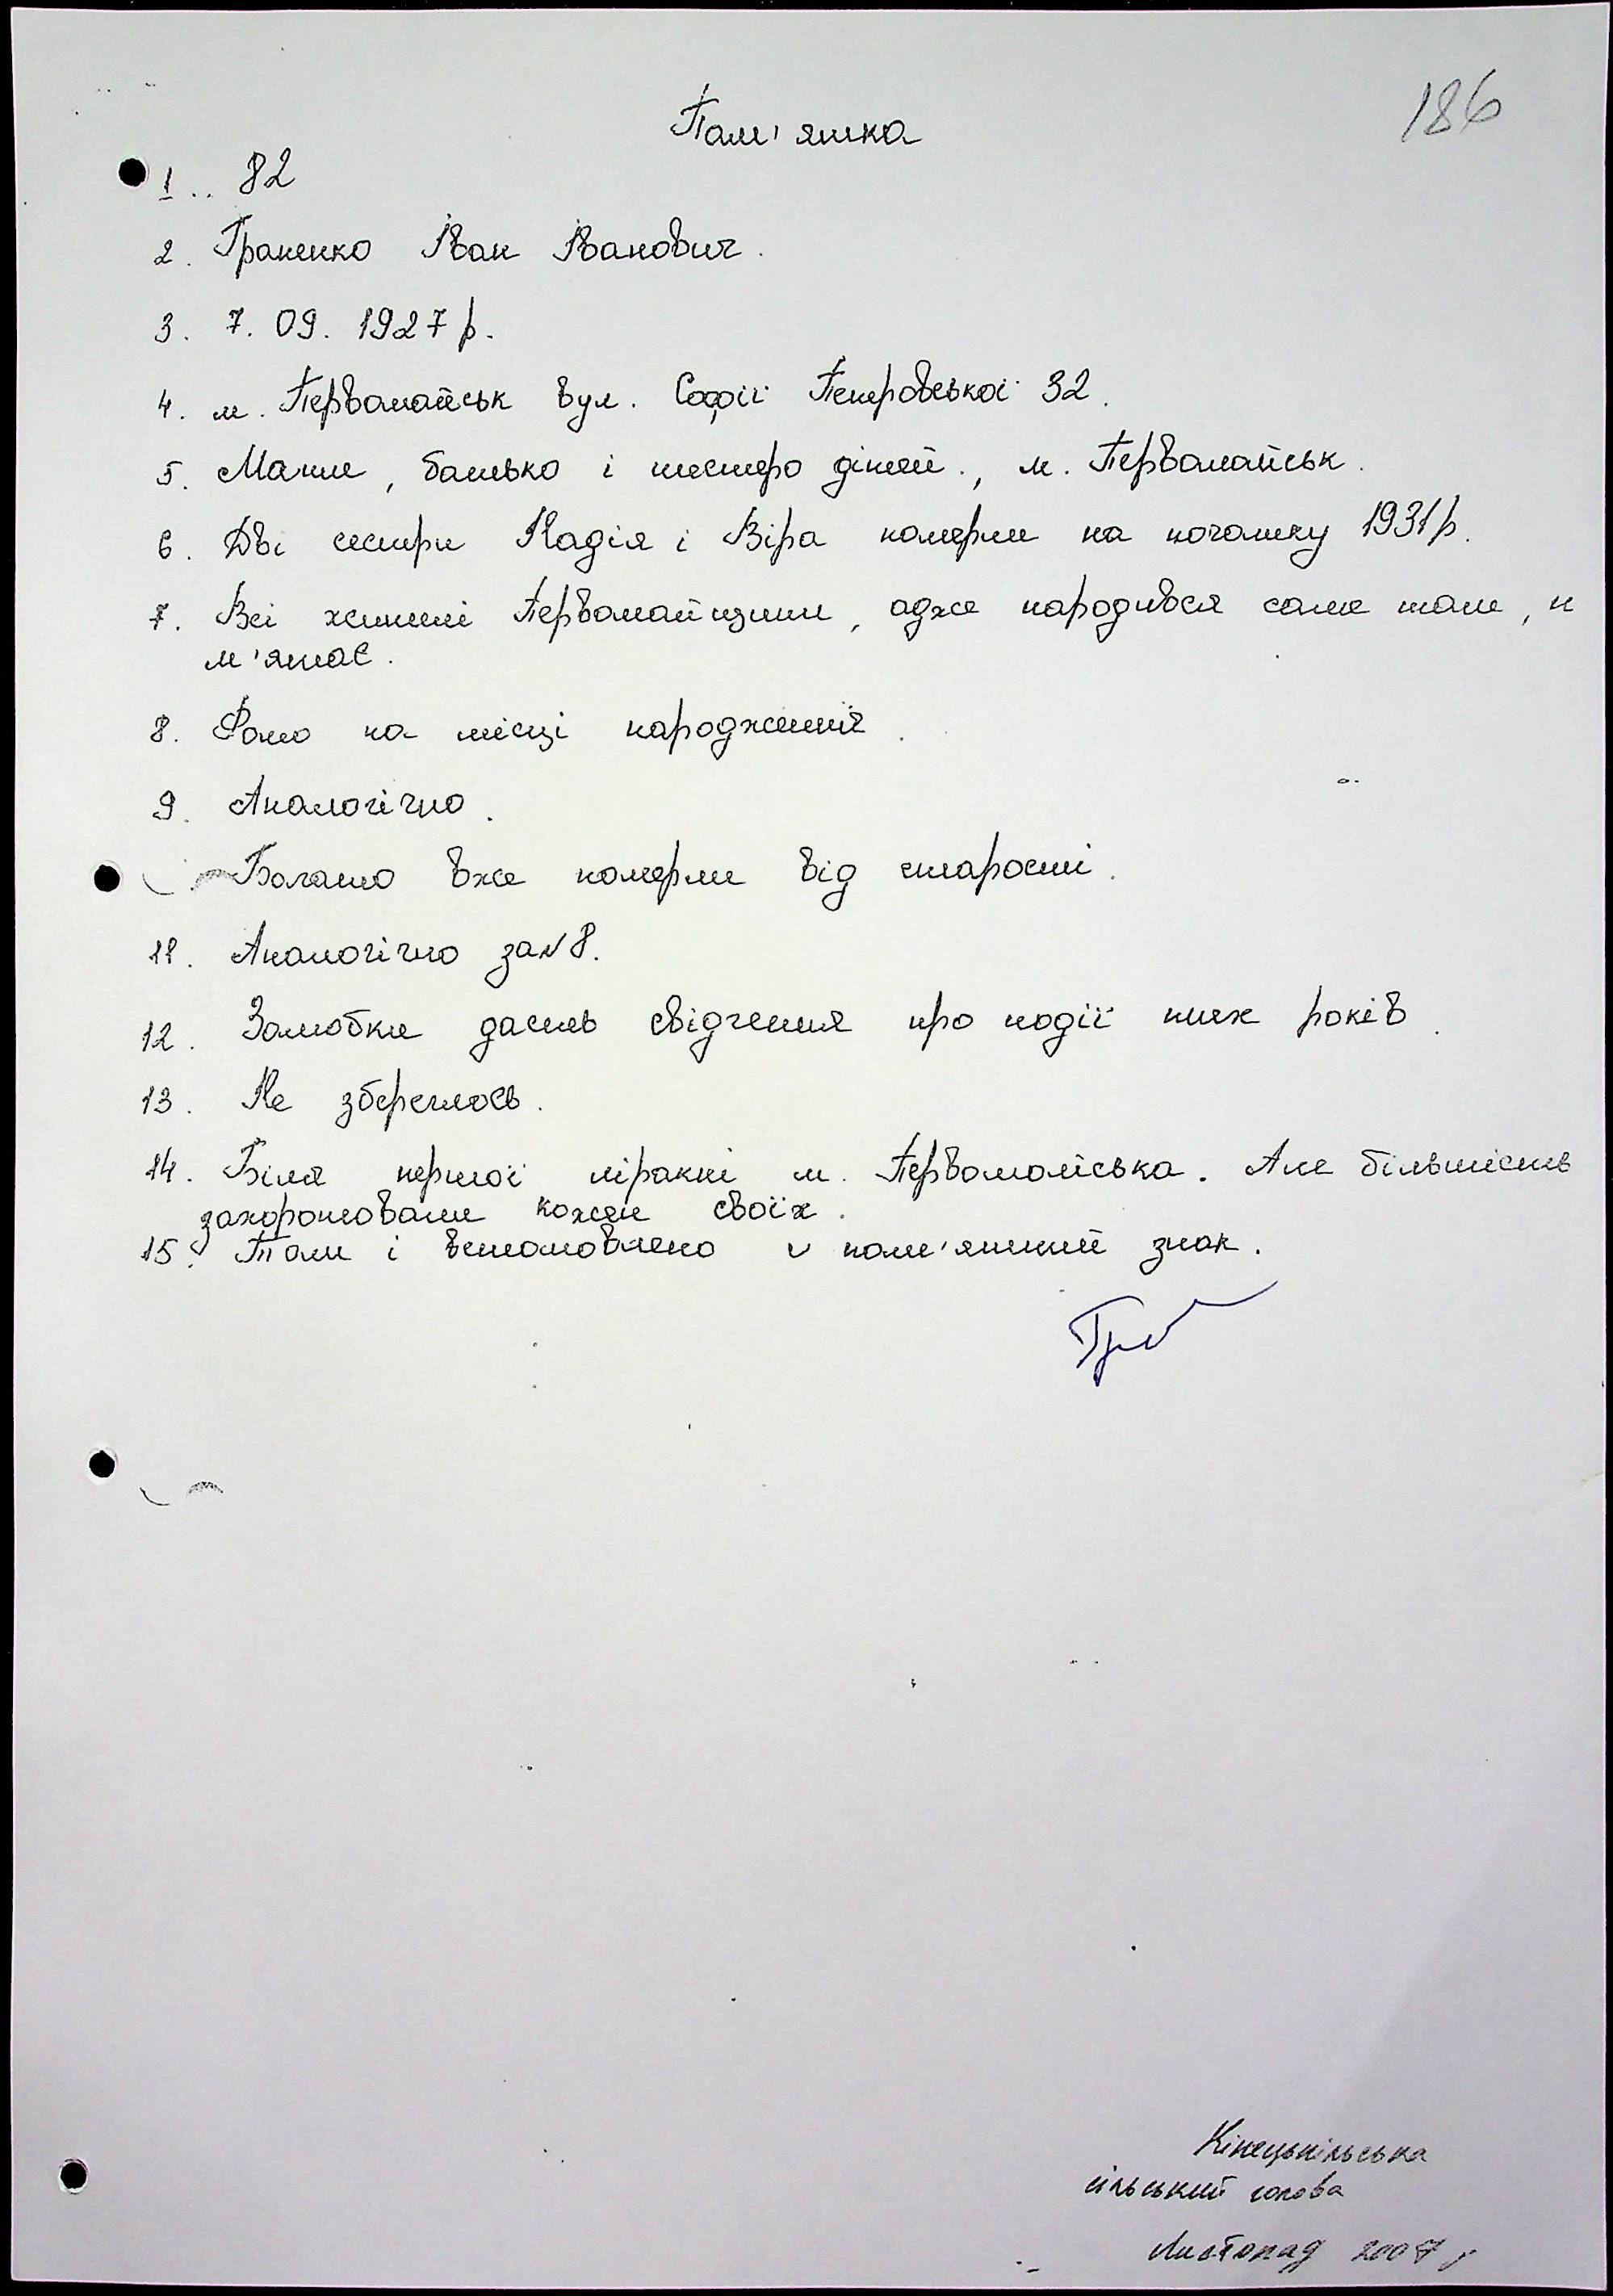 186
Пам'ятка
1. 82
2. Граненко Іван Іванович.
3. 7. 09. 1927 р.
4. м. Первомайськ вул. Софії Перовської 32.
5. Мати, батько і шестеро дітей., м. Первомайськ.
6. Дві сестри Надія і Віра померли на початку 1931 р.
7. Всі жителі Первомайщини, адже народився саме там, п
м'ятає.
8. Фото на місці народження.
9. Аналогічно.
Багато вже померли від старості.
11. Аналогічно за № 8.
12. Залюбки дасть свідчення про події тих років.
13. Не збереглось.
14. Біля першої лікарні м. Первомайська. Але більшість
захоронювали кожен своїх.
15. Там і встановлено v пам'ятний знак.
Кінецьпільська
сільський голова
Листопад 2007 р